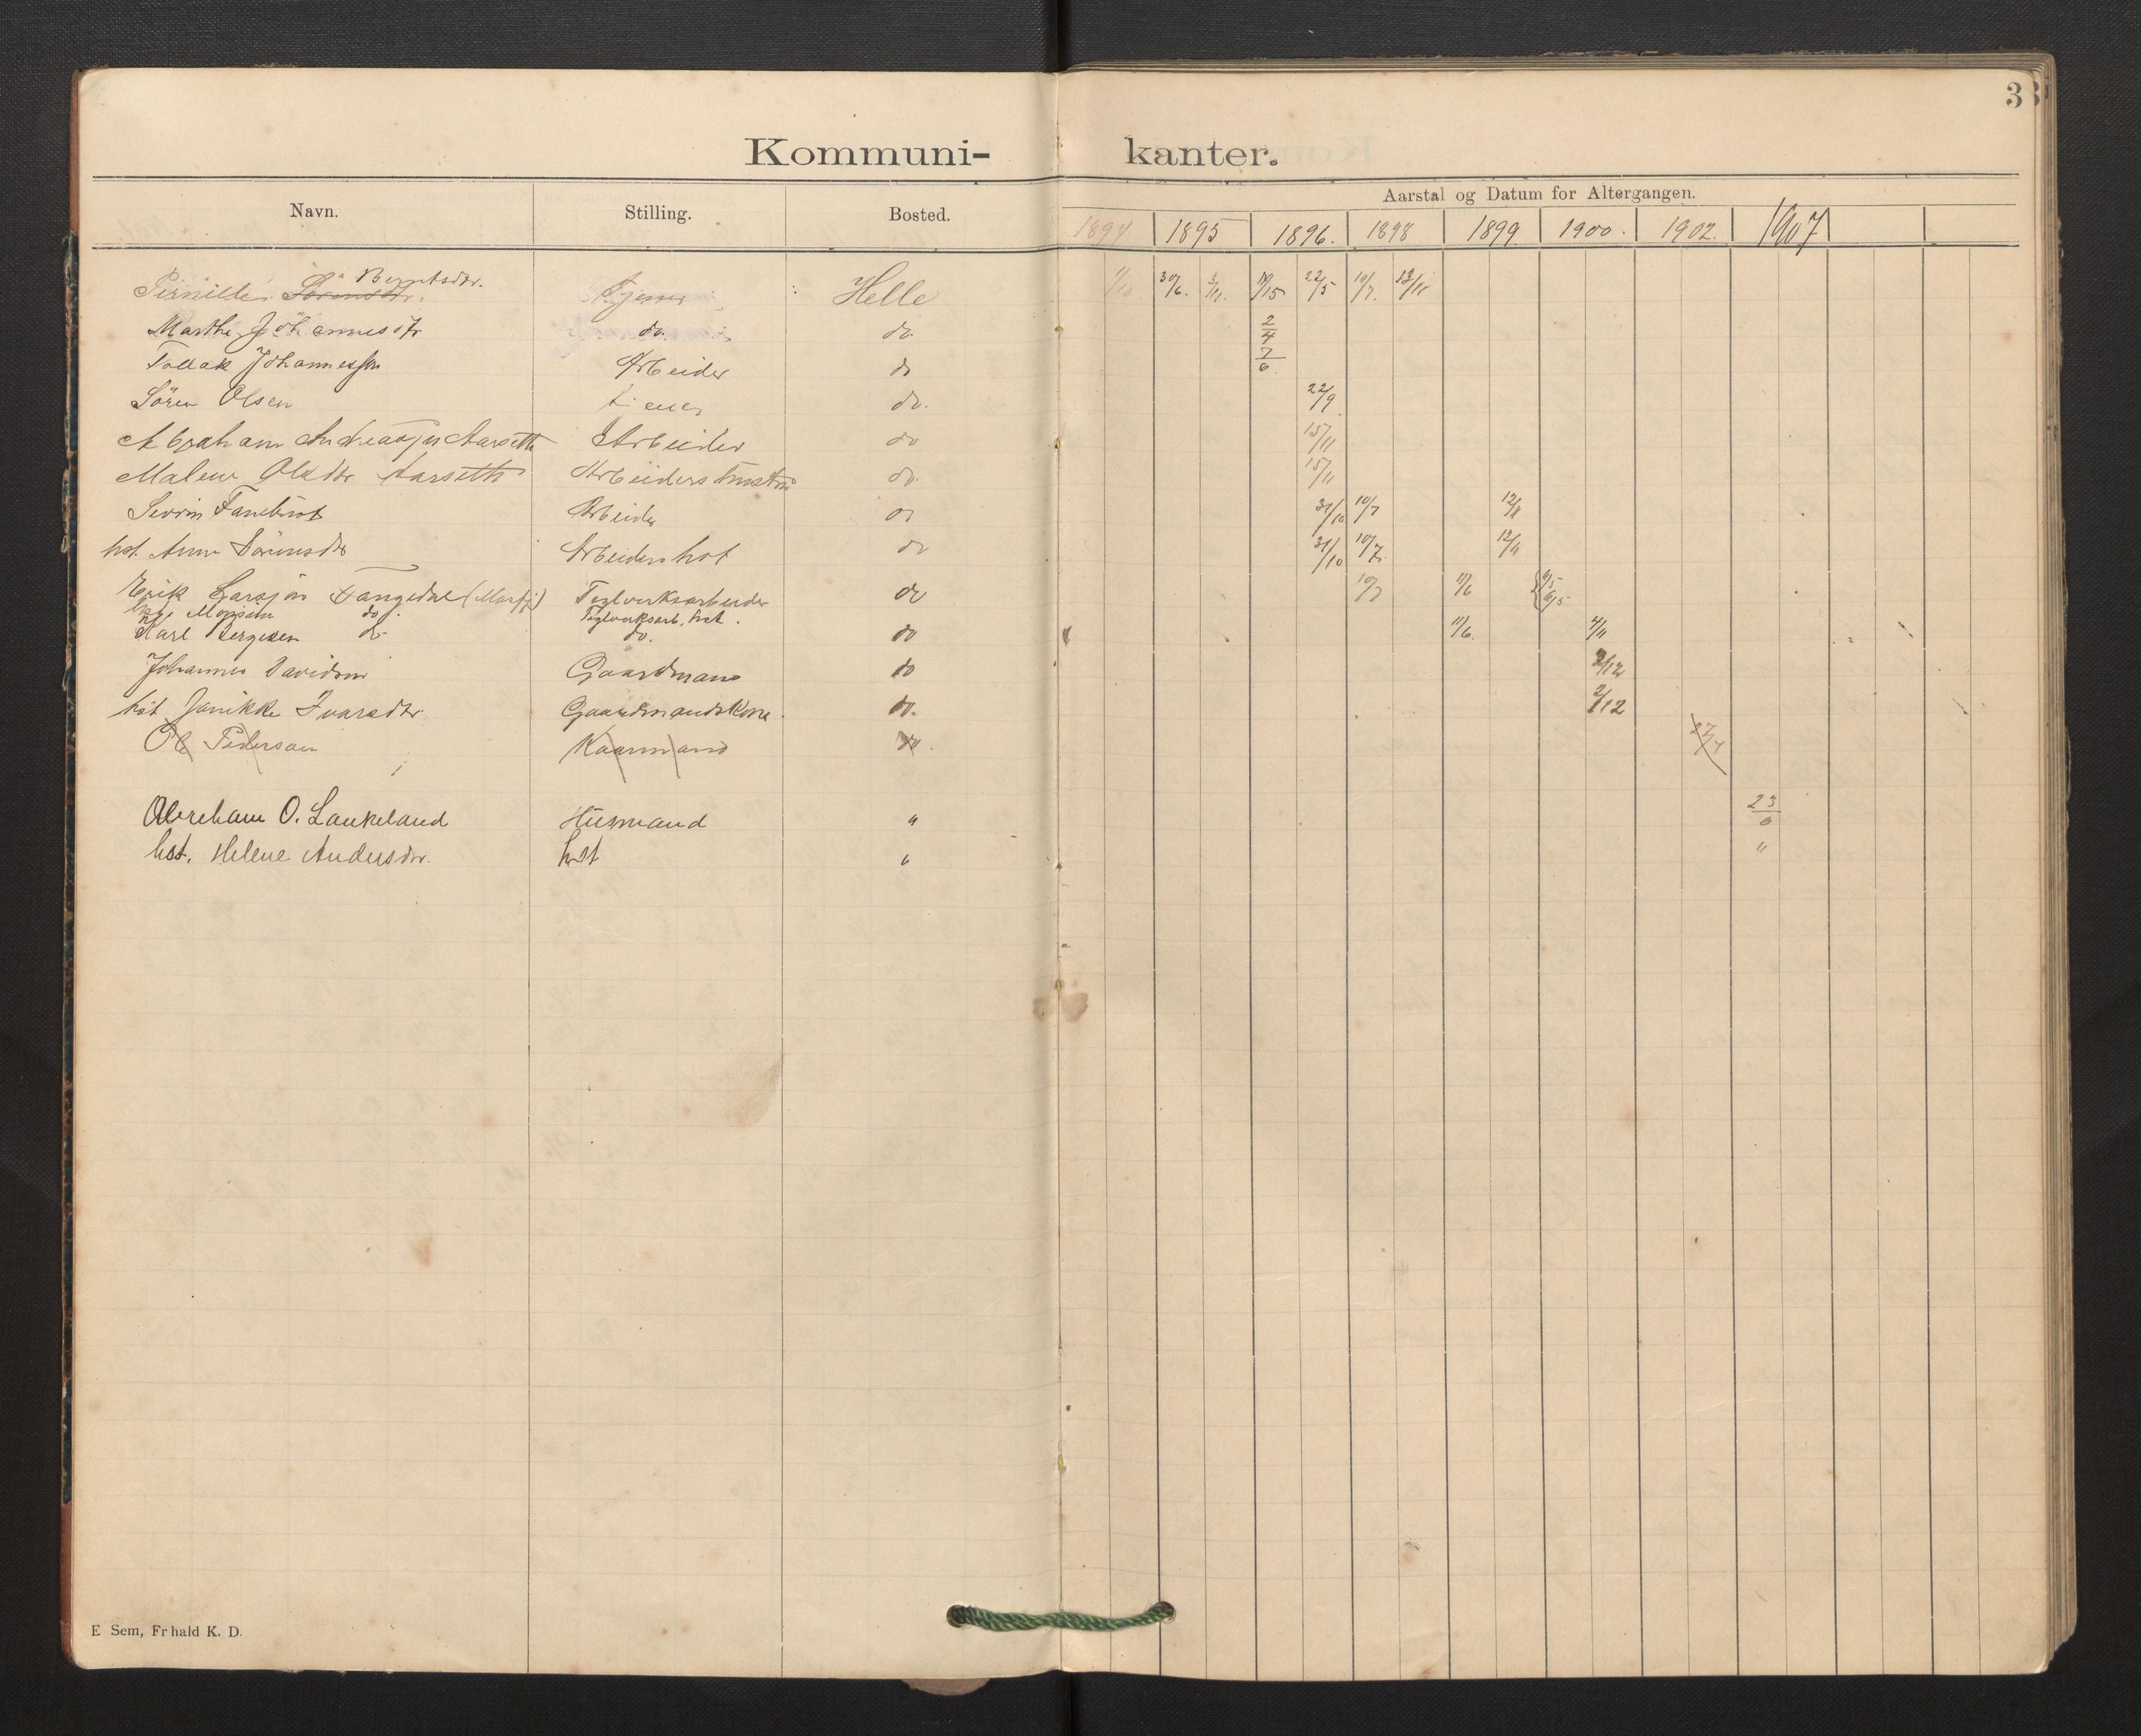 3
Kommuni-kanter.
Navn. Stilling. Bosted. Aarstal og Datum for Altergangen.
1894 1895 1896. 1898 1899 1900. 1902. 1907
Berntsdtr.
Pernille Sörensdtr. Tjener Helle 30/6. 22/5 10/7. 13/11
Marthe Johannesdtr do. do. 2/4
Tollak Johannessen Arbeider do 7/6.
Sören Olsen do. 22/9
Abraham Andreassen Aarseth Arbeider do 15/11
Malene Olsdtr Aarseth Arbeiders hustru do. 15/11
Sevrin Arbeider do 31/10 10/7 12/11
hst. Anna Sörensdtr Arbeiders hst do 31/10 10/7 12/11
Erik Larsen Teglverksarbeider do 10/7 11/6 6/5
do. Teglverksarb. hst.
Karl Bergesen do. do. do 11/6. 4/11
Johannes Davidsen Gaardmand do 2/12
hst Janikke Ivarsdtr. Gaardmandskone do. 2/12
Ole Pedersen Kaarmand do. 27/4
Abreham O. Laukeland Husmand " 23/6
hst. Helene Andersdtr. hst " "
E Sem, Fr hald K. D.